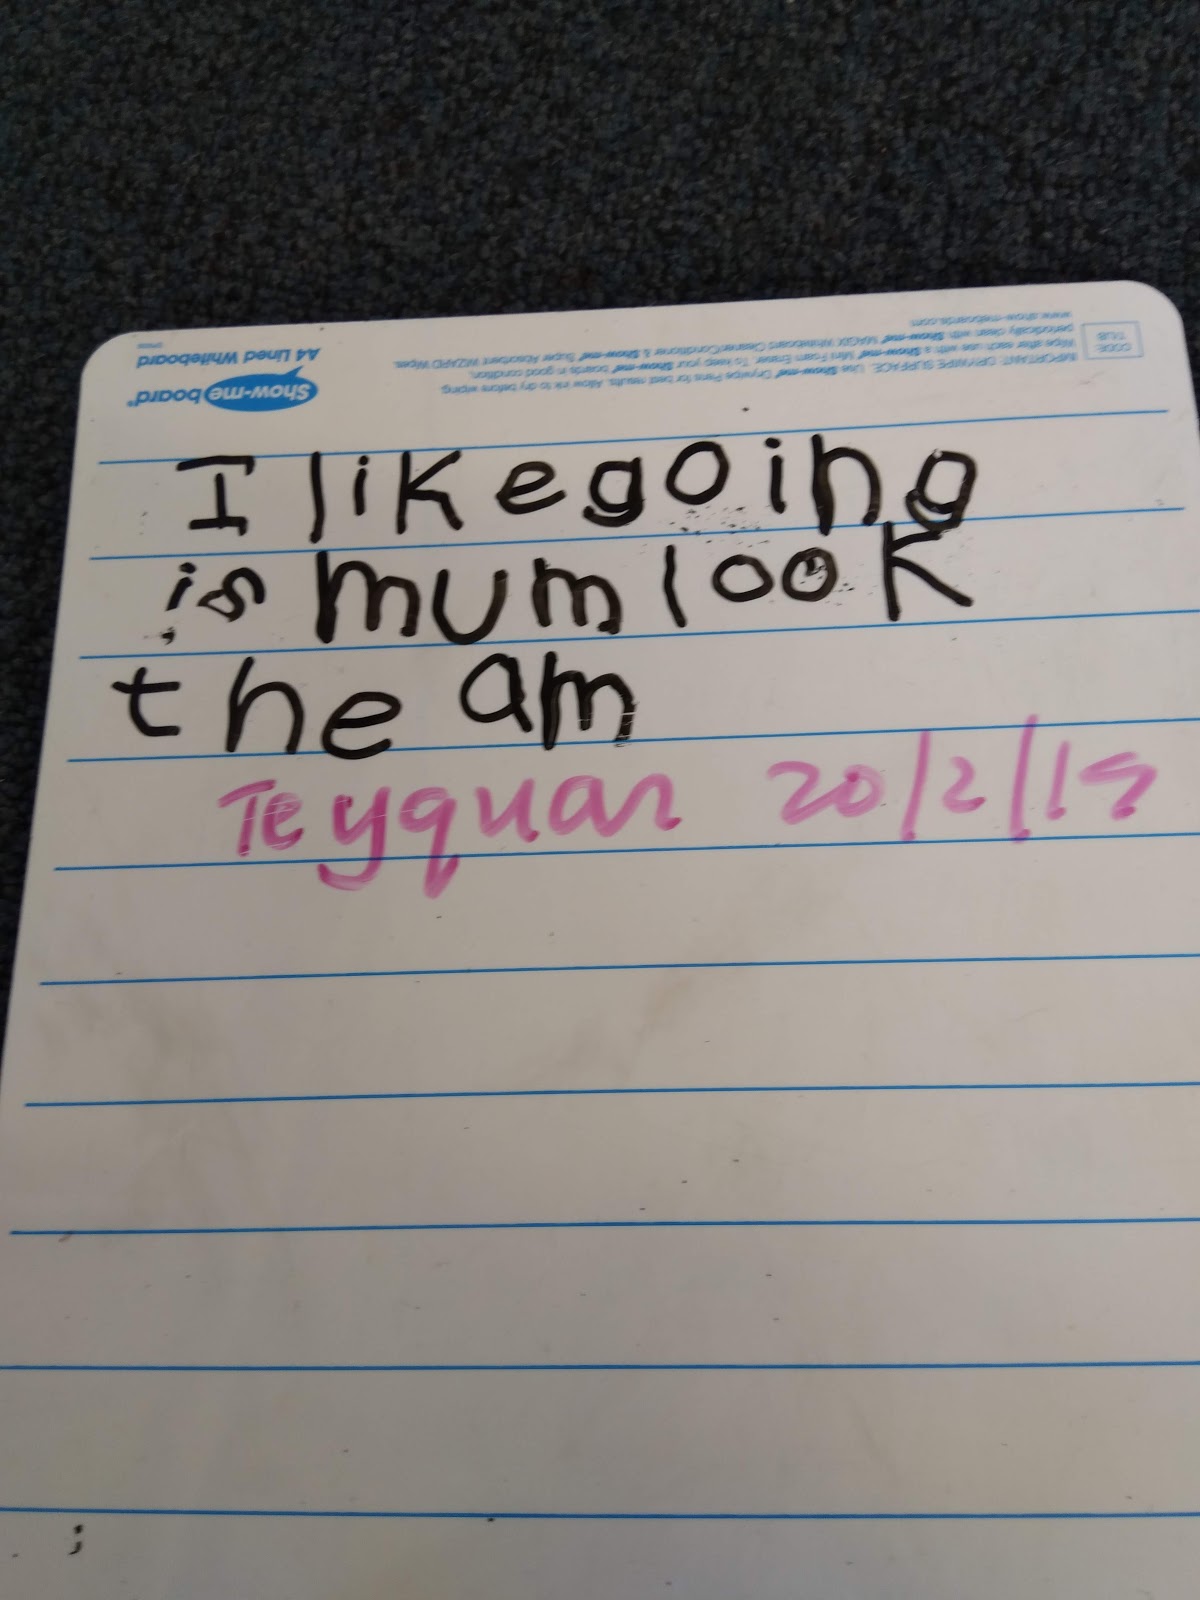 Show-me board®
A4 Lined Whiteboard
IMPORTANT: DRYWIPE SURFACE. Use Show-me® Drywipe Pens for best results. Allow ink to dry before wiping.
Wipe after each use with a Show-me® Mini Foam Eraser. To keep your Show-me® boards in good condition,
periodically clean with Show-me® MAGIX Whiteboard Cleaner/Conditioner & Show-me® Super Absorbent WIZARD Wipes.
www.show-meboards.com
CODE:
I like going
is mum look
the am
Teyquan 20/2/19